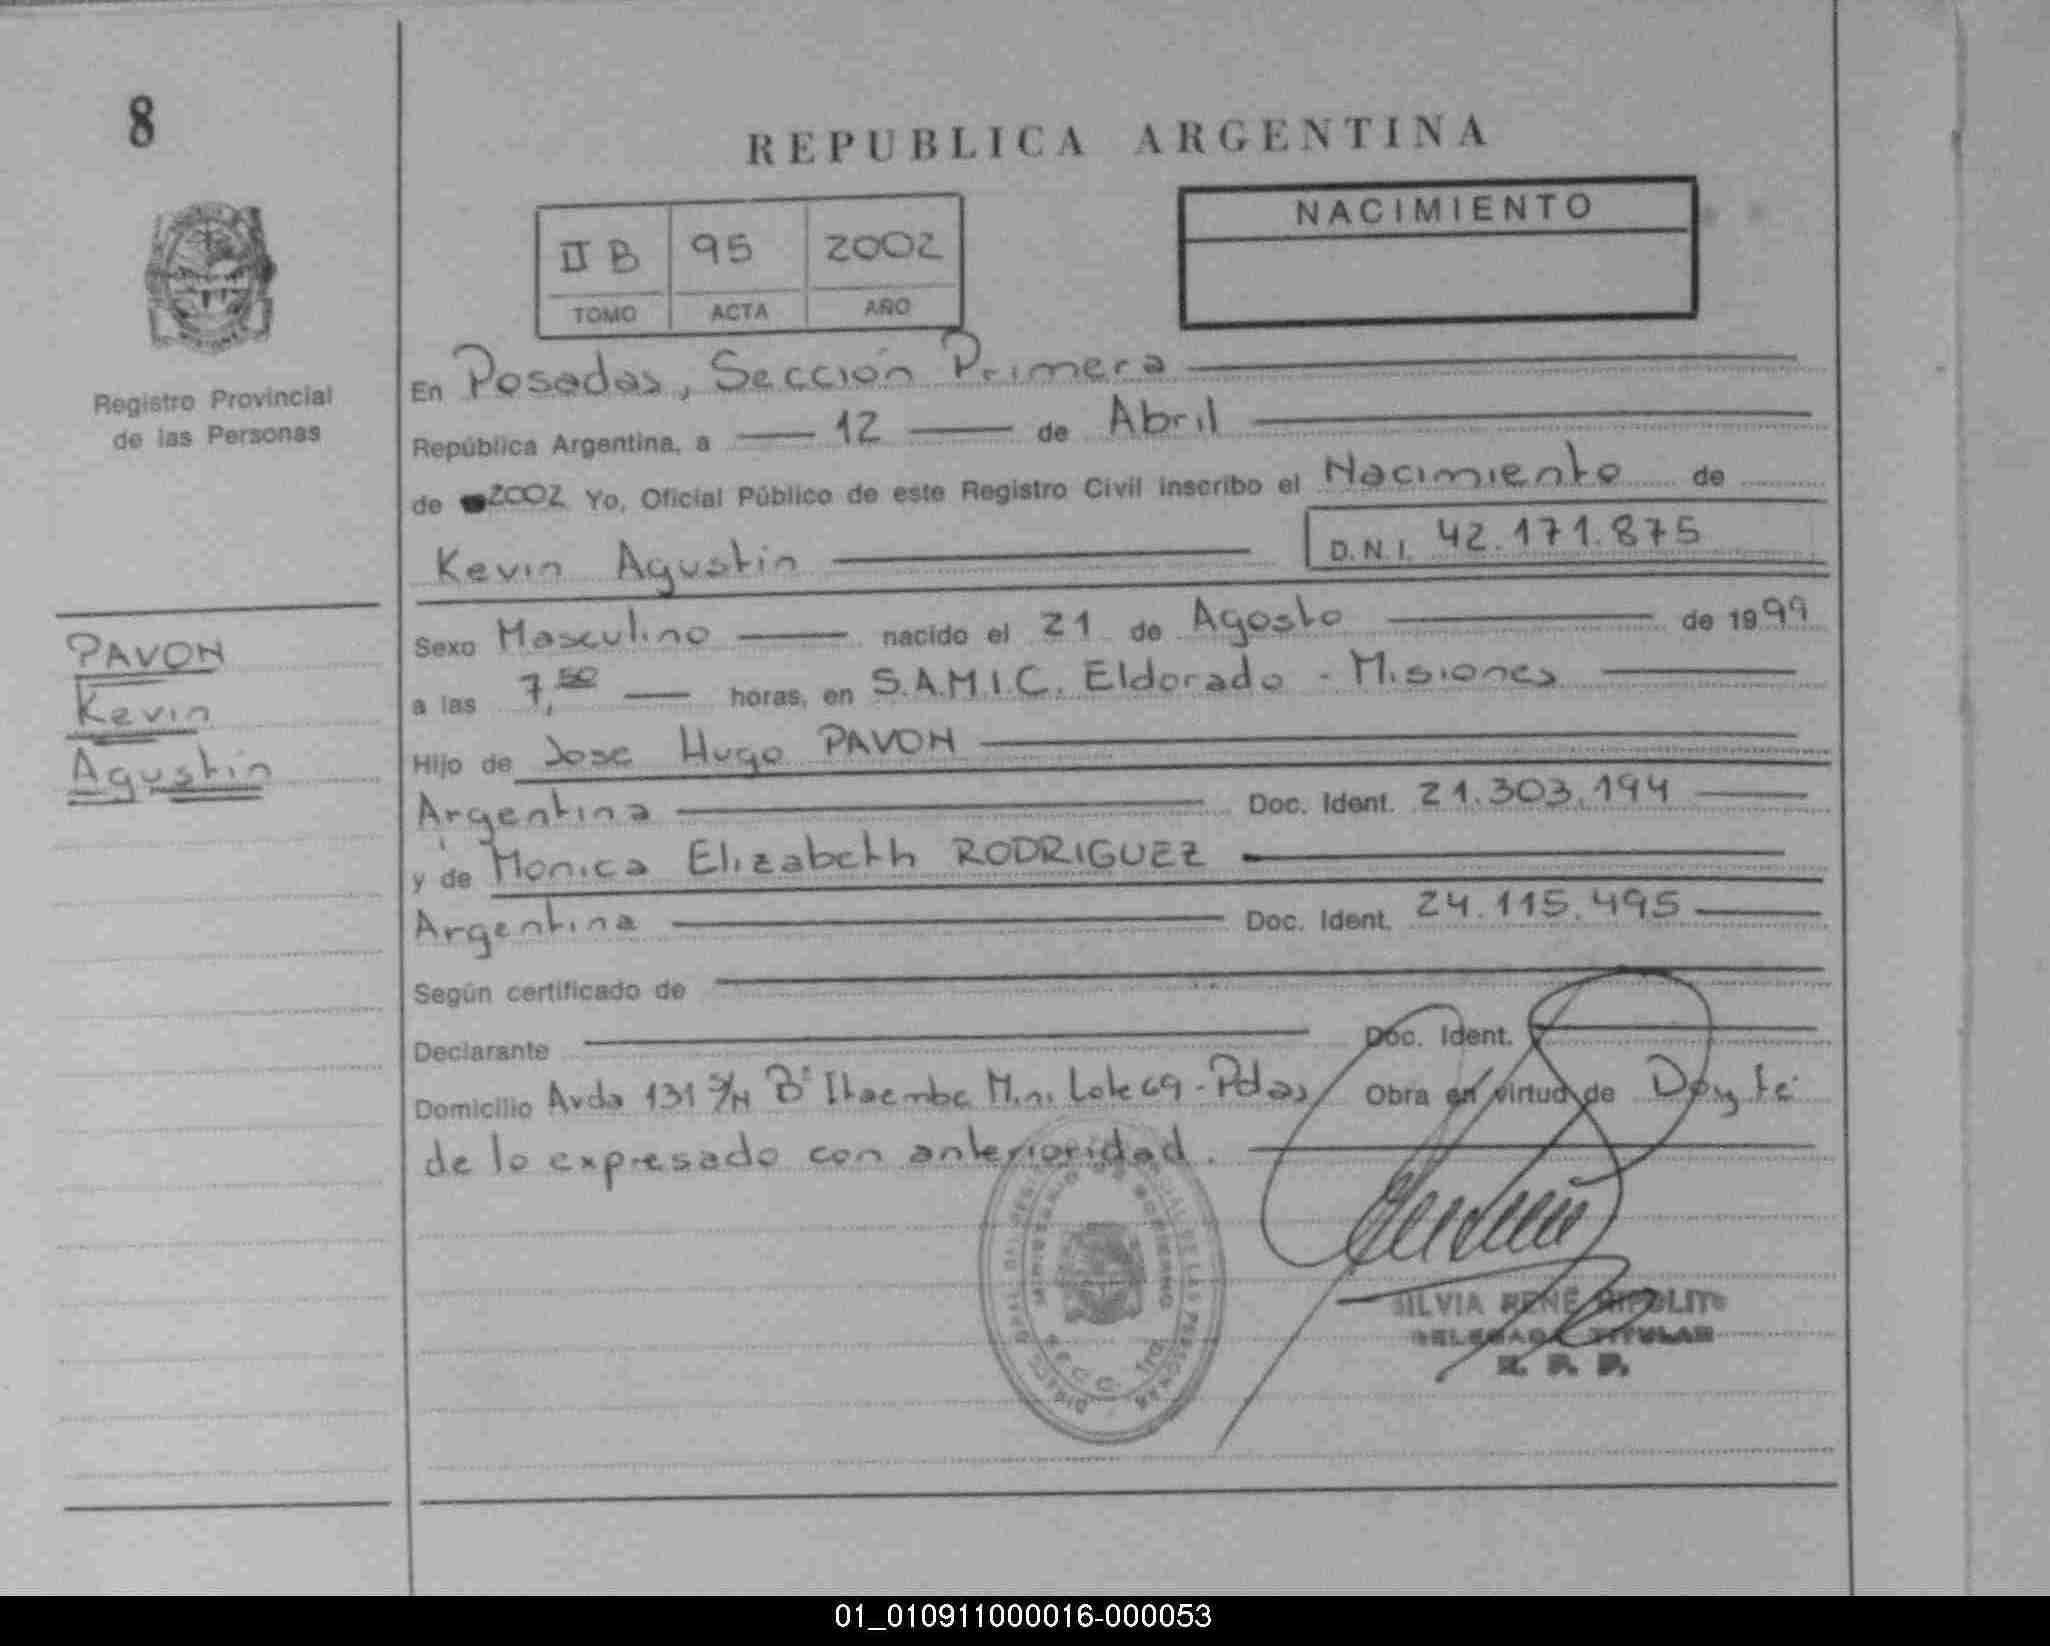 8
REPUBLICA ARGENTINA
NACIMIENTO
II B 95 2002
TOMO ACTA AÑO
Registro Provincial
de las Personas
En Posadas, Sección Primera
República Argentina, a 12 de Abril
de 2002 Yo, Oficial Público de este Registro Civil inscribo el Nacimiento de
Kevin Agustin D.N.I. 42.171.875
PAVON
Kevin
Agustin
Sexo Masculino nacido el 21 de Agosto de 1999
a las 7,50 horas, en S.A.M.I.C. Eldorado - Misiones
Hijo de Jose Hugo PAVON
Argentina Doc. Ident. 21.303.194
y de Monica Elizabeth RODRIGUEZ
Argentina Doc. Ident. 24.115.495
Según certificado de
Declarante Doc. Ident.
Domicilio Avda 131 S/N Bº Itaembe Mini Lote 69 - Pdas Obra en virtud de Doy fé
de lo expresado con anterioridad.
MINISTERIO DE GOBIERNO
DE LAS PERSONAS
SILVIA RENÉ HIPOLITO
DELEGADA TITULAR
R. P. P.
01_010911000016-000053